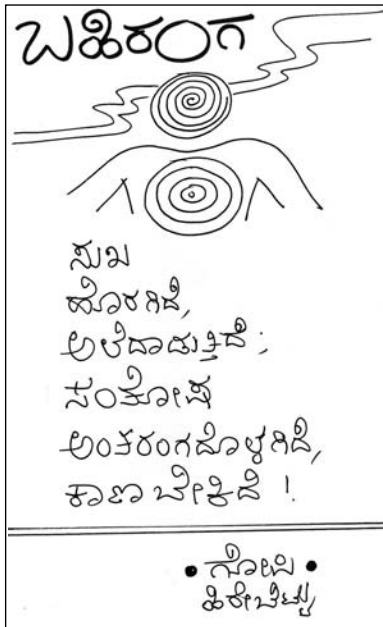 ಬಹಿರಂಗ
ಸುಖ
ಹೊರಗಿದೆ,
ಅಲೆದಾಡುತ್ತಿದೆ;
ಸಂತೋಷ
ಅಂತರಂಗದೊಳಗಿದೆ,
ಕಾಣ ಬೇಕಿದೆ !
• ಗೋಪಿ •
ಹಿರೇಬೆಟ್ಟು